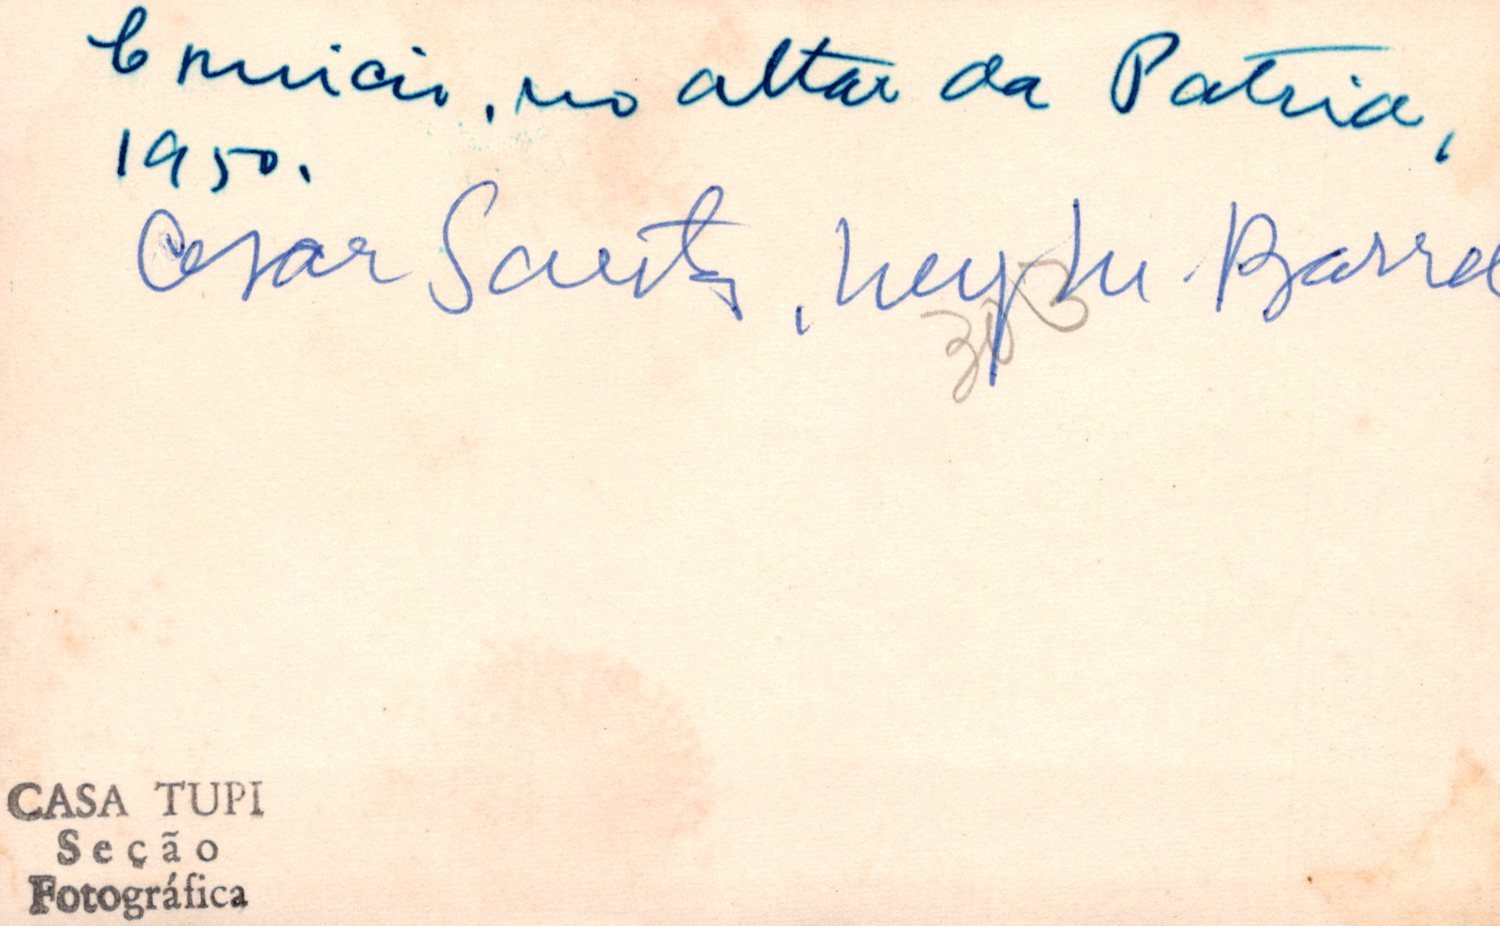 Comicio, no altar da Patria,
1950.
Cesar Santos,
CASA TUPI
Seção
Fotográfica